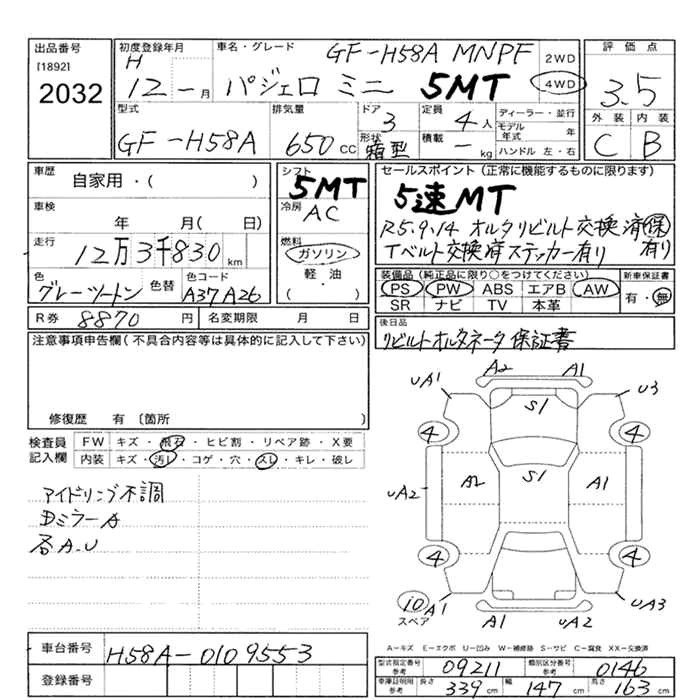 出品番号
[1892]
2032
初度登録年月
H
12 - 月
車名・グレード
GF-H58A MNPF
パジェロ ミニ 5MT
2WD
4WD
評価点
3.5
外装 内装
C B
型式
GF-H58A
排気量
650 cc
ドア
3
形状
箱型
定員
4 人
積載
- kg
ディーラー・並行
モデル年式 年
ハンドル 左・右
車歴
自家用・( )
車検
年 月( 日)
走行
12万3千830 km
色
グレーツートン
色替
色コード
A37 A26
シフト
5MT
冷房
AC
燃料
ガソリン
軽・油
( ・ )
R券 8870 円
名変期限 月 日
セールスポイント(正常に機能するものに限ります)
5速MT
R5.9.14 オルタリビルト交換済 保有り
Tベルト交換済ステッカー有り
装備品(純正品に限り○をつけてください)
PS PW ABS エアB AW
SR ナビ TV 本革
新車保証書
有・無
後日品
リビルトオルタネータ保証書
注意事項申告欄(不具合内容等は具体的に記入して下さい)
修復歴 有〔箇所 〕
検査員記入欄
FW キズ・飛石・ヒビ割・リペア跡・X要
内装 キズ・汚レ・コゲ・穴・スレ・キレ・破レ
アイドリング不調
DミラーA
各A.U
A2 A1
UA1 U3
S1
4 4
UA2 A2 S1 A1
4 4
10
スペア
A1 UA3
A1 UA2
A-キズ E-エクボ U-凹み W-補修跡 S-サビ C-腐食 XX-交換済
車台番号 H58A-0109553
登録番号
型式指定番号 参考 09211
類別区分番号 参考 0146
車庫証明用 参考 長さ 339 cm 幅 147 cm 高さ 163 cm